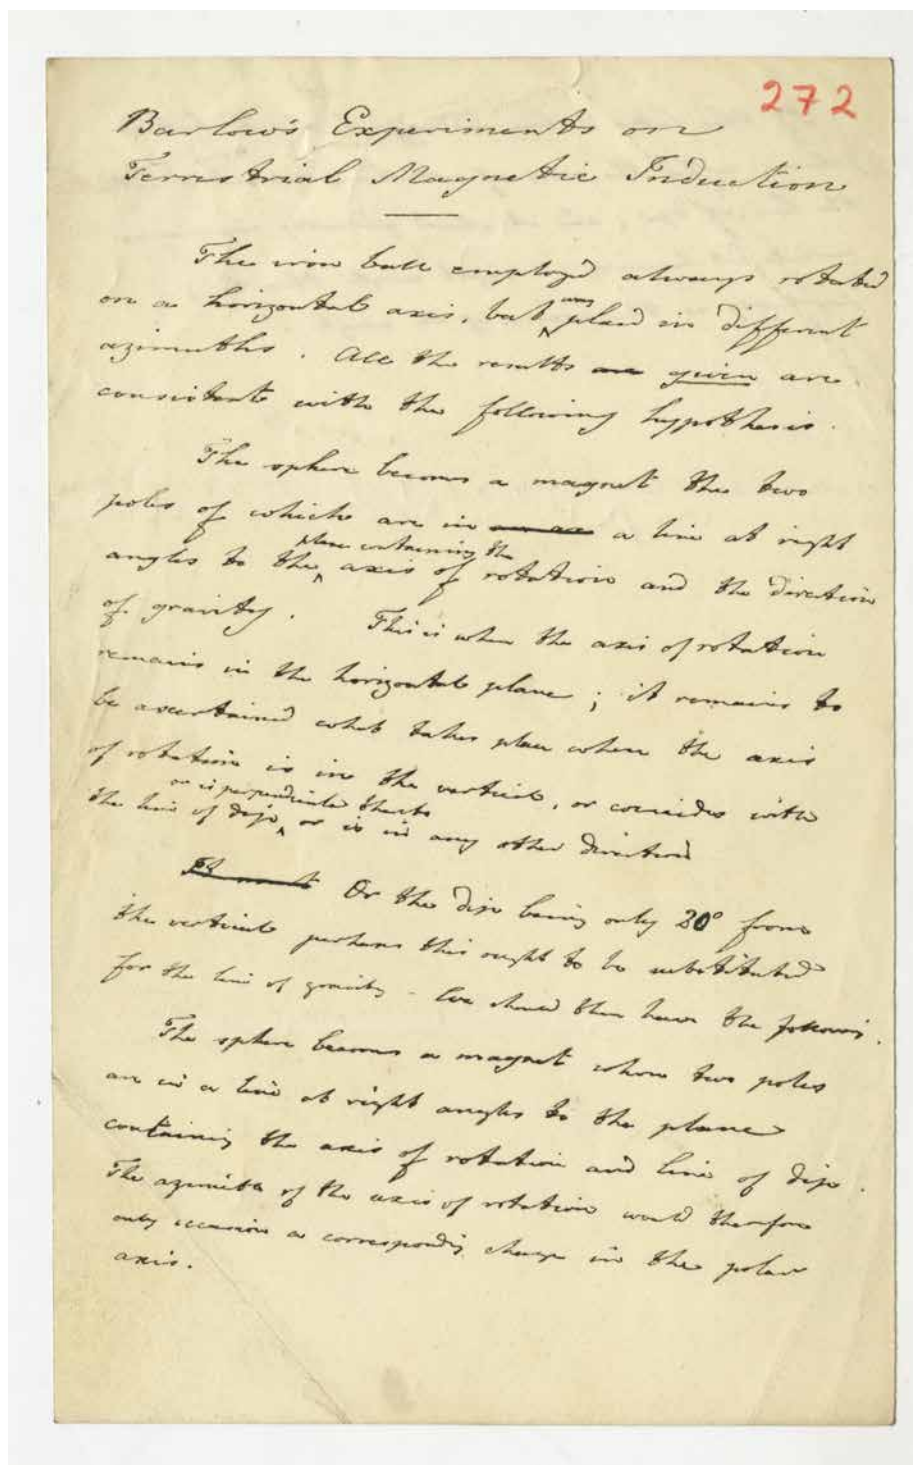 272
Barlow's Experiments on
Terrestrial Magnetic Induction
The iron ball employd always rotated
on a horizontal axis, but was placed in different
azimuths. All the results are given are
consistent with the following hypothesis.
The sphere becomes a magnet the two
poles of which are in a line at right
plane containing the
angles to the axis of rotation and the direction
of gravity. This is when the axis of rotation
remains in the horizontal plane; it remains to
be ascertained what takes place when the axis
of rotation is in the vertical, or coincides with
or is perpendicular thereto
the line of dip, or is in any other direction
Or the dip being only 20° from
the vertical perhaps this ought to be substituted
for the line of gravity - We should then have the following.
The sphere becomes a magnet whose two poles
are in a line at right angles to the plane
containing the axis of rotation and line of dip.
The azimuth of the axis of rotation would therefore
only occasion a corresponding change in the polar
axis.